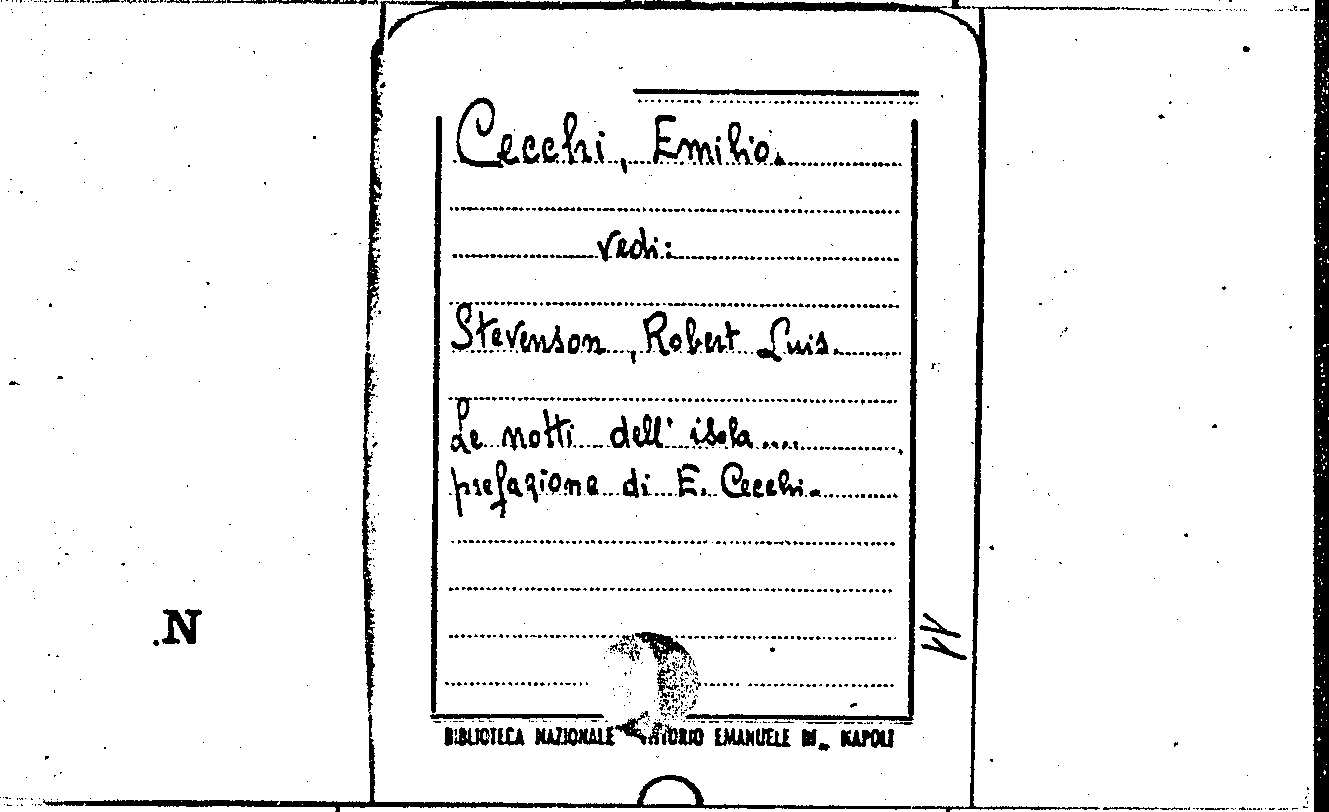 Cecchi, Emilio.
vedi:
Stevenson, Robert Luis.
Le notti dell' isola....
prefazione di E. Cecchi.
.N
BIBLIOTECA NAZIONALE VITTORIO EMANUELE III - NAPOLI